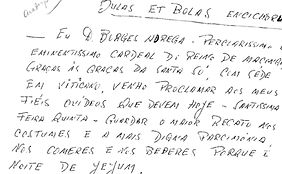 BULAS ET BOLAS ENCICHORE
— EU D. BORGES NOREGA - PERCLARISSIMO
EMINENTISSIMO CARDEAL DO REINO DE
GRAÇAS ÀS GRAÇAS DA SANTA SÉ, COM SÉDE
EM VITICANO, VENHO PROCLAMAR AOS MEUS
FIÉIS OUVIDEOS QUE DEVEM HOJE - SANTISSIMA
FEIRA QUINTA - GUARDAR O MAIOR RECATO NOS
COSTUMES E A MAIS DIGNA PARCIMÓNIA
NOS COMERES E NOS BEBERES PORQUE É
NOITE DE JEJUM.